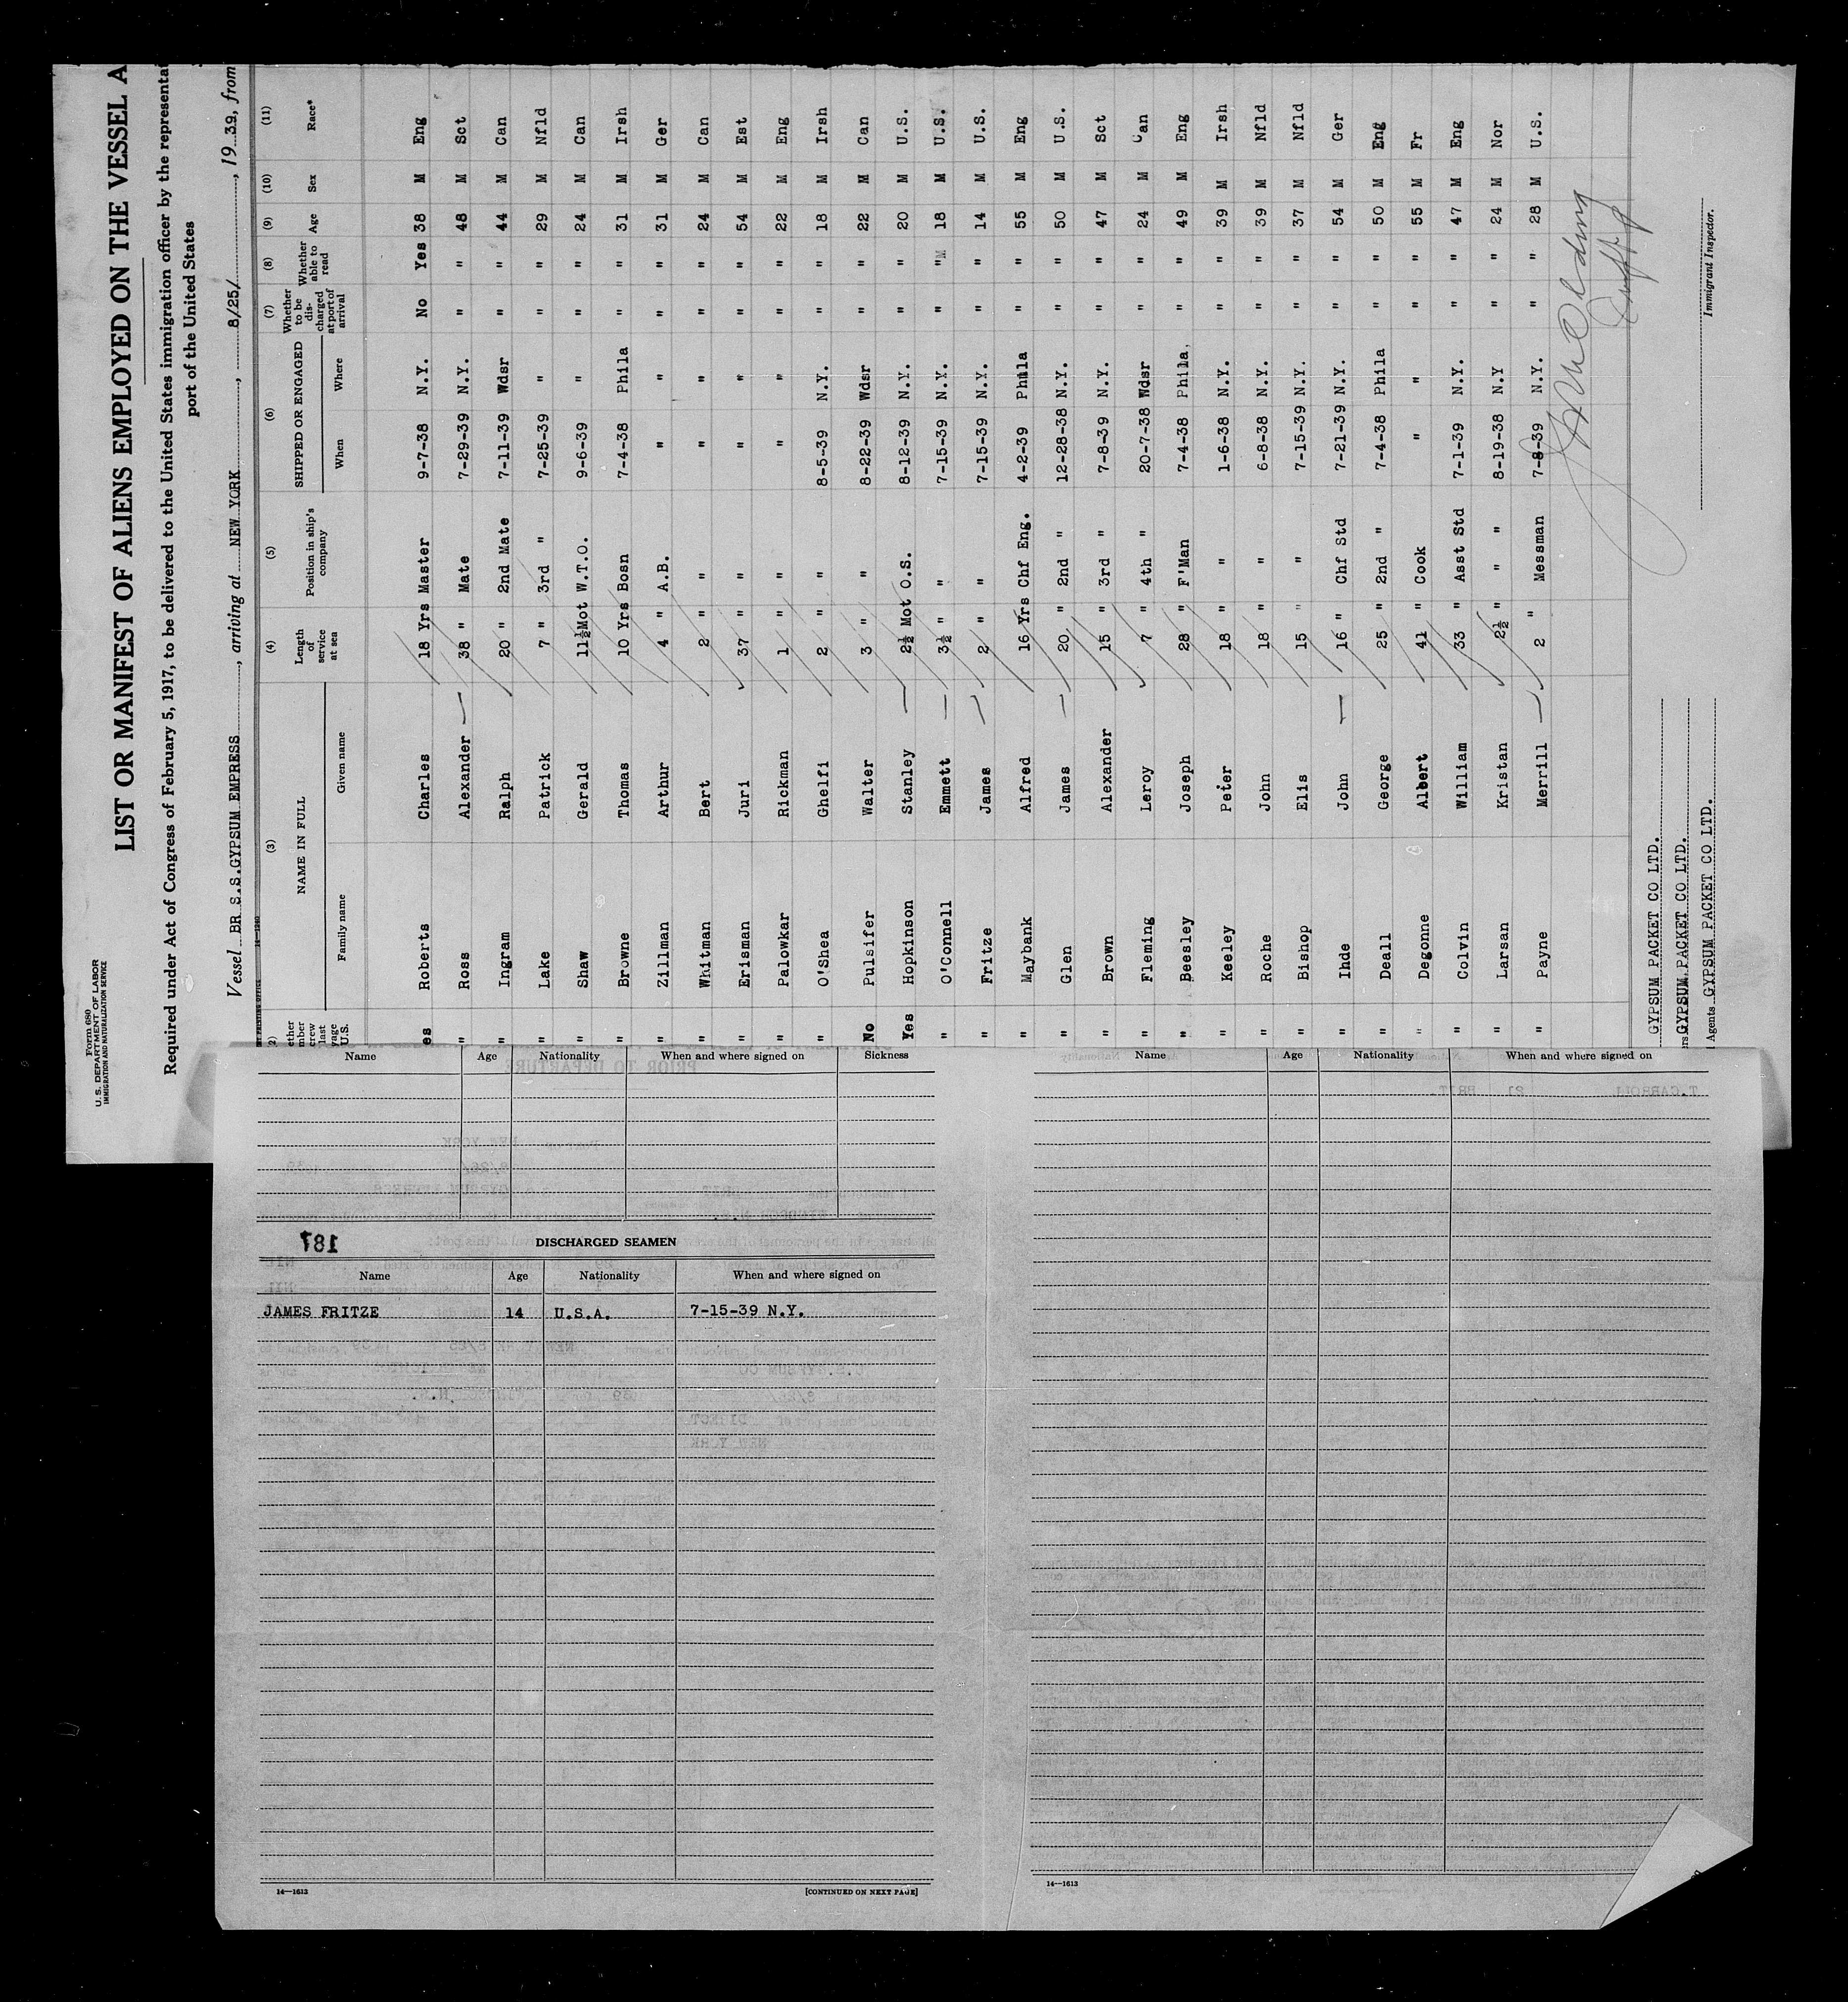 Form 680
U. S. DEPARTMENT OF LABOR
IMMIGRATION AND NATURALIZATION SERVICE
LIST OR MANIFEST OF ALIENS EMPLOYED ON THE VESSEL A
Required under Act of Congress of February 5, 1917, to be delivered to the United States immigration officer by the
port of the United States
Vessel BR S.S.GYPSUM EMPRESS, arriving at NEW YORK, 8/25/, 19 39, from
(2) (3) (4) (5) (6) (7) (8) (9) (10) (11)
NAME IN FULL Length of service at sea Position in ship's company SHIPPED OR ENGAGED Whether to be discharged at port of arrival Whether able to read Age Sex Race*
Family name Given name When Where
es Roberts Charles 18 Yrs Master 9-7-38 N.Y. No Yes 38 M Eng
" Ross Alexander 38 " Mate 7-29-39 N.Y. " " 48 M Sct
" Ingram Ralph 20 " 2nd Mate 7-11-39 Wdsr " " 44 M Can
" Lake Patrick 7 " 3rd " 7-25-39 " " " 29 M Nfld
" Shaw Gerald 11½Mot W.T.O. 9-6-39 " " " 24 M Can
" Browne Thomas 10 Yrs Bosn 7-4-38 Phila " " 31 M Irsh
" Zillman Arthur 4 " A.B. " " " " 31 M Ger
" Whitman Bert 2 " " " " " " 24 M Can
" Erisman Juri 37 " " " " " " 54 M Est
" Palowkar Rickman 1 " " " " " " 22 M Eng
" O'Shea Ghelfi 2 " " 8-5-39 N.Y. " " 18 M Irsh
No Pulsifer Walter 3 " " 8-22-39 Wdsr " " 22 M Can
Yes Hopkinson Stanley 2½ Mot O.S. 8-12-39 N.Y. " " 20 M U.S.
" O'Connell Emmett 3½ " " 7-15-39 N.Y. " " 18 M U.S.
" Fritze James 2 " " 7-15-39 N.Y. " " 14 M U.S.
" Maybank Alfred 16 Yrs Chf Eng. 4-2-39 Phila " " 55 M Eng
" Glen James 20 " 2nd " 12-28-38 N.Y. " " 50 M U.S.
" Brown Alexander 15 " 3rd " 7-8-39 N.Y. " " 47 M Sct
" Fleming Leroy 7 " 4th " 20-7-38 Wdsr " " 24 M Can
" Beesley Joseph 28 " F'Man 7-4-38 Phila. " " 49 M Eng
" Keeley Peter 18 " " 1-6-38 N.Y. " " 39 M Irsh
" Roche John 18 " " 6-8-38 N.Y. " " 39 M Nfld
" Bishop Elis 15 " " 7-15-39 N.Y. " " 37 M Nfld
" Ihde John 16 " Chf Std 7-21-39 N.Y. " " 54 M Ger
" Deall George 25 " 2nd " 7-4-38 Phila " " 50 M Eng
" Degonne Albert 41 " Cook " " " " 55 M Fr
" Colvin William 33 " Asst Std 7-1-39 N.Y. " " 47 M Eng
" Larsan Kristan 2½ " " " 8-19-38 N.Y " " 24 M Nor
" Payne Merrill 2 " Messman 7-8-39 N.Y. " " 28 M U.S.
GYPSUM PACKET CO LTD.
GYPSUM PACKET CO LTD.
Agents GYPSUM PACKET CO LTD.
Immigrant Inspector.
Name Age Nationality When and where signed on Sickness
187
DISCHARGED SEAMEN
Name Age Nationality When and where signed on
JAMES FRITZE 14 U.S.A. 7-15-39 N.Y.
14—1613 [CONTINUED ON NEXT PAGE]
Name Age Nationality When and where signed on
14—1613